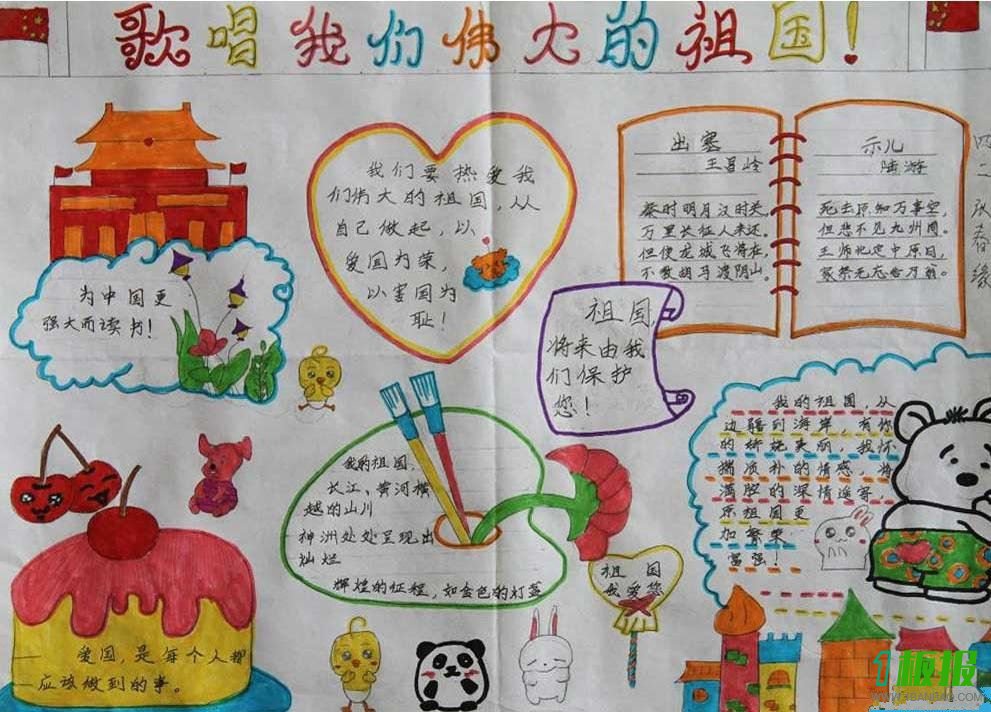 歌唱我们伟大的祖国！
我们要热爱我
们伟大的祖国，从
自己做起，以
爱国为荣，
以害国为
耻！
出塞
王昌岭
秦时明月汉时关，
万里长征人未还。
但使龙城飞将在，
不教胡马渡阴山。
示儿
陆游
死去原知万事空，
但悲不见九州同。
王师北定中原日，
家祭无忘告乃翁。
四二
春缘
为中国更
强大而读书！
祖国，
将来由我
们保护
您！
我的祖国，从
边疆到海岸，有你
的妖娆美丽，我怀
揣质朴的情感，将
满腔的深情遥寄，
原祖国更
加繁荣
富强！
我的祖国，
长江、黄河横
越的山川
神洲处处呈现出
灿烂
辉煌的征程，如金色的灯盏
祖国
我爱您
爱国，是每个人都
应该做到的事。
板报